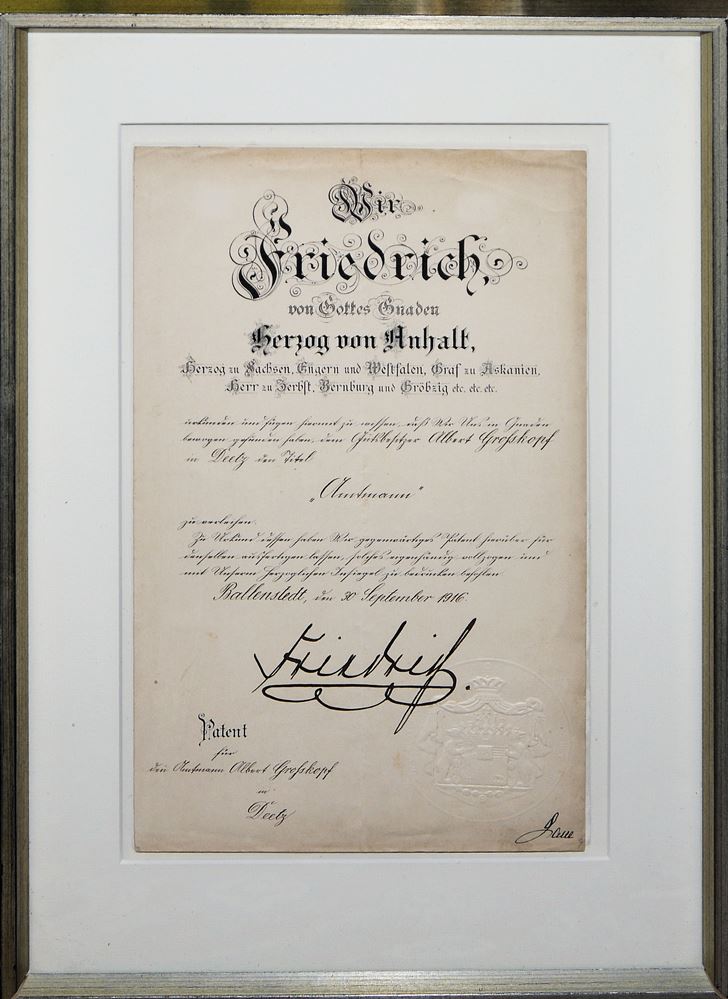 Wir
Friedrich,
von Gottes Gnaden
Herzog von Anhalt,
Herzog zu Sachsen, Engern und Westfalen, Graf zu Askanien,
Herr zu Zerbst, Bernburg und Gröbzig etc. etc. etc.
urkunden und fügen hiermit zu wissen, daß Wir Uns in Gnaden
bewogen gefunden haben, dem Gutsbesitzer Albert Großkopf
in Deetz den Titel
„Amtmann“
zu verleihen.
Zu Urkund dessen haben Wir gegenwärtiges Patent hierüber für
denselben ausfertigen lassen, solches eigenhändig vollzogen und
mit Unserm Herzoglichen Insiegel zu bedrucken befohlen.
Ballenstedt, den 30 September 1916.
Friedrich.
Patent
für
den Amtmann Albert Großkopf
in
Deetz